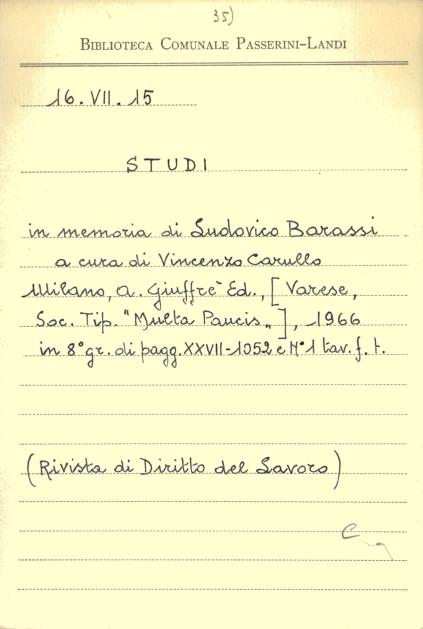 35)
BIBLIOTECA COMUNALE PASSERINI-LANDI
16. VII. 15
STUDI
in memoria di Ludovico Barassi
a cura di Vincenzo Carullo
Milano, A. Giuffrè Ed., [Varese,
Soc. Tip. "Multa Paucis"], 1966
in 8° gr. di pagg. XXVII-1052 e N° 1 tav. f. t.
(Rivista di Diritto del Lavoro)